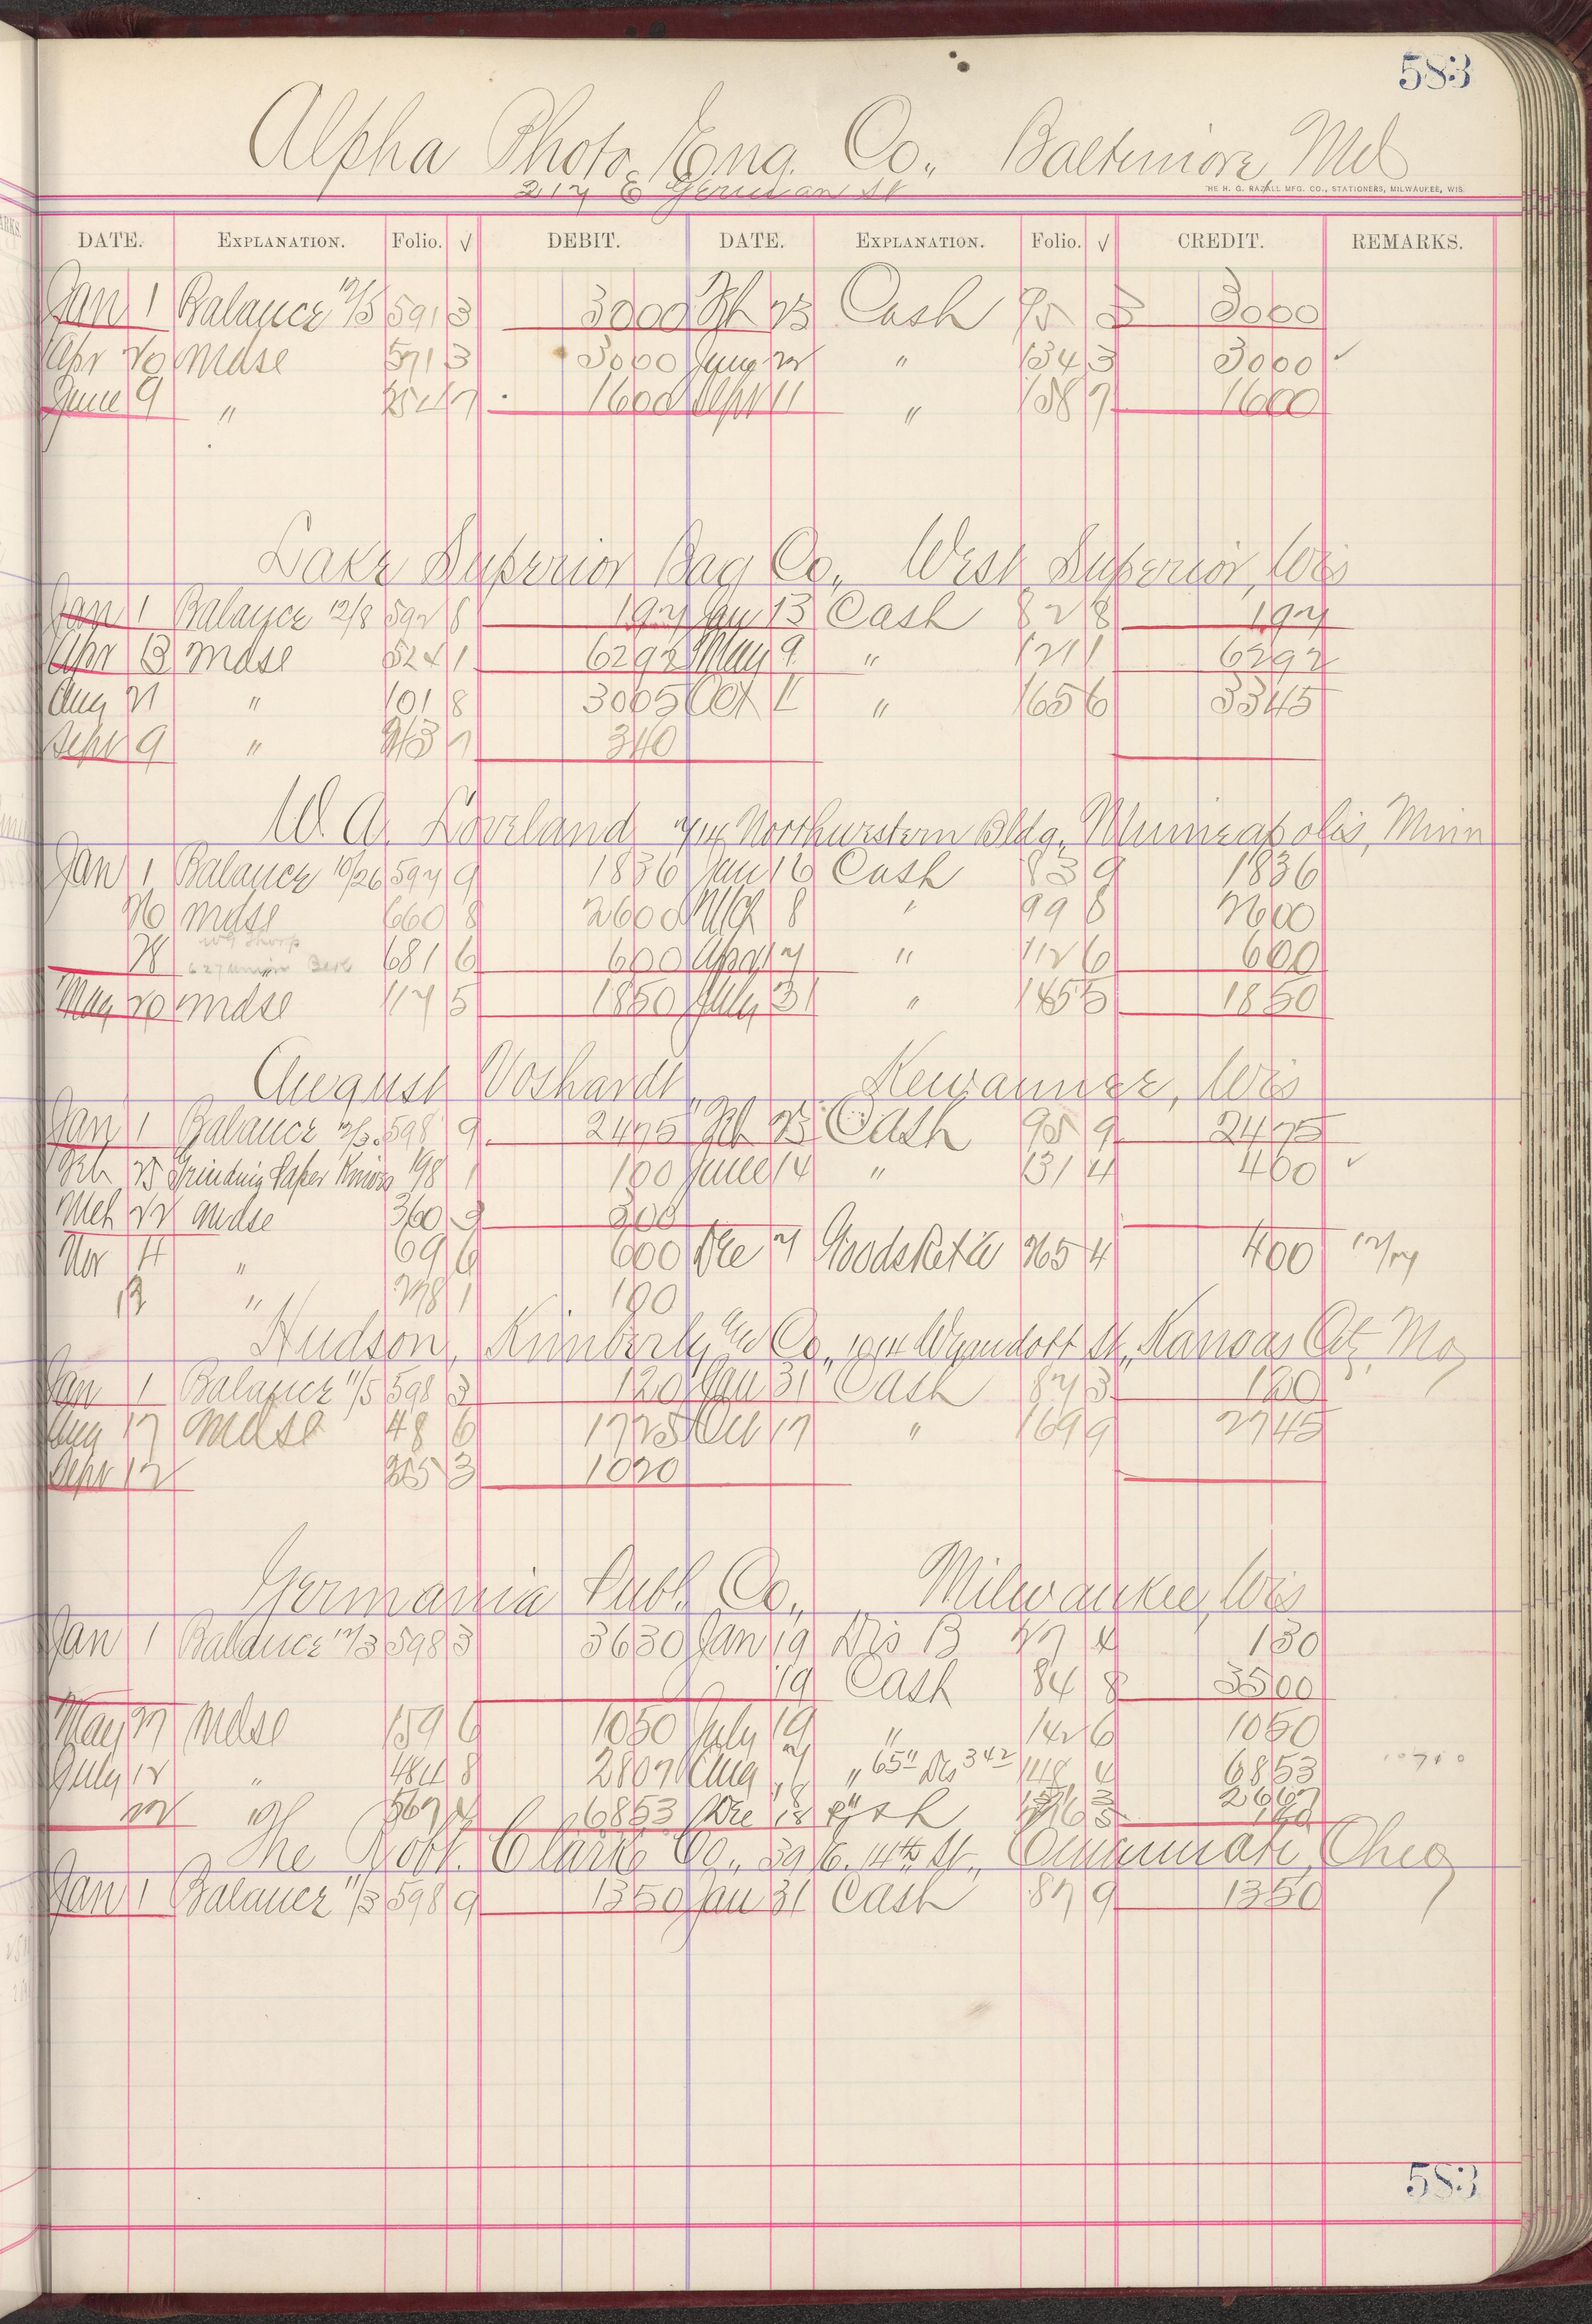 583
Alpha Photo Eng. Co., Baltimore, Md
217 E German St
THE H. G. RAZALL MFG. CO., STATIONERS, MILWAUKEE, WIS.
DATE. EXPLANATION. Folio. √ DEBIT. DATE. EXPLANATION. Folio. √ CREDIT. REMARKS.
Jan 1 Balance 12/5 591 3 3000 Feb 23 Cash 95 3 3000
Apr 20 Mdse 571 3 3000 " 134 3 3000 ✓
June 9 " 7 1600 Sept 11 " 158 7 1600
Lake Superior Bag Co., West Superior, Wis
Jan 1 Balance 12/8 592 8 197 Jan 13 Cash 82 8 197
Apr 13 Mdse 524 1 6292 May 9 " 121 1 6292
Aug 21 " 101 8 3005 Oct " 165 6 3345
Sept 9 " 213 7 340
W. A. Loveland 714 Northwestern Bldg., Minneapolis, Minn
Jan 1 Balance 10/26 597 9 1836 Jan 16 Cash 83 9 1836
26 Mdse 660 8 2600 Mch 8 " 99 8 2600
28 " 681 6 600 Apr 17 " 112 6 600
May 20 Mdse 117 5 1850 July 31 " 145 5 1850
August Voshardt, Kewaunee, Wis
Jan 1 Balance 12/3 598 9 2475 Feb 23 Cash 95 9 2475
Feb 25 Grinding Paper Knives 198 1 100 June 14 " 131 4 400 ✓
Mch 22 Mdse 360 3 300
Nov 4 " 69 6 600 Dec 7 Goods Ret'd 265 4 400 12/27
" 278 1 190
Hudson, Kimberly Co., 1014 Wyandott St., Kansas City Mo
Jan 1 Balance 11/5 598 3 120 Jan 31 Cash 87 3 120
Aug 17 Mdse 48 6 1725 Oct 17 " 169 9 2745
Sept 12 3 1020
Germania Publ. Co., Milwaukee, Wis
Jan 1 Balance 12/3 598 3 3630 Jan 19 Dis B 27 4 130
19 Cash 84 8 3500
May 27 Mdse 159 6 1050 July 19 " 142 6 1050
July 12 " 484 8 2807 Aug " 4 6853
22 " 567 4 6853 Dec 18 Cash 2667
The Robt. Clarke Co., Cincinnati, Ohio
Jan 1 Balance 11/3 598 9 1350 Jan 31 Cash 87 9 1350
583